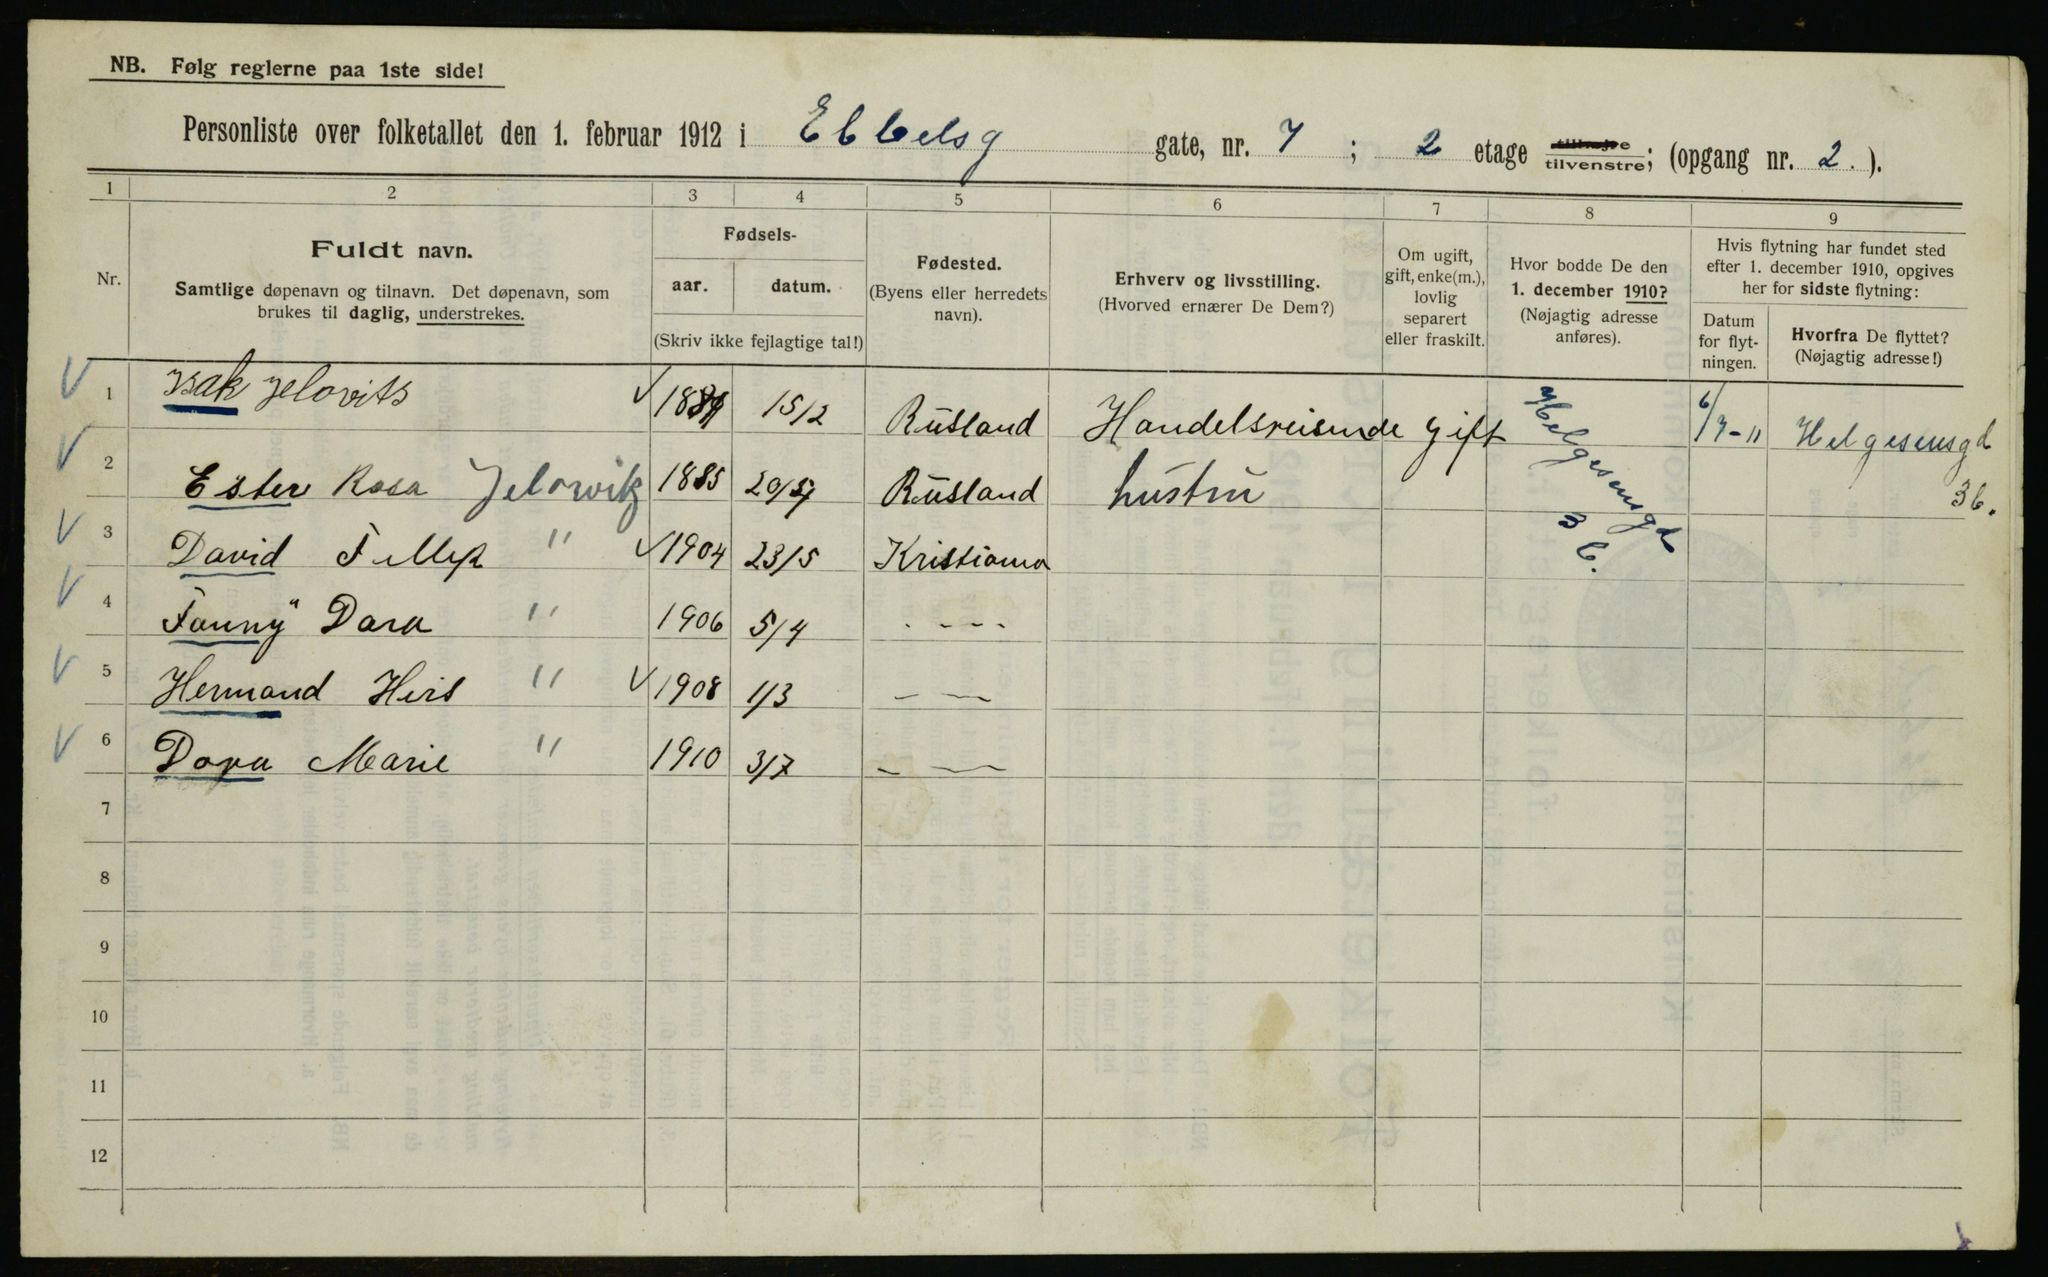 NB. Følg reglerne paa 1ste side!
Personliste over folketallet den 1. februar 1912 i Ebbelsg gate, nr. 7 ; 2 etage tilhøjre tilvenstre; (opgang nr. 2. ).
1 2 3 4 5 6 7 8 9
Nr.
Fuldt navn.
Samtlige døpenavn og tilnavn. Det døpenavn, som
brukes til daglig, understrekes.
Fødsels-
aar. datum.
(Skriv ikke fejlagtige tal!)
Fødested.
(Byens eller herredets
navn).
Erhverv og livsstilling.
(Hvorved ernærer De Dem?)
Om ugift,
gift, enke(m.),
lovlig
separert
eller fraskilt.
Hvor bodde De den
1. december 1910?
(Nøjagtig adresse
anføres).
Hvis flytning har fundet sted
efter 1. december 1910, opgives
her for sidste flytning:
Datum
for flyt-
ningen.
Hvorfra De flyttet?
(Nøjagtig adresse!)
1 Isak Jelovits 15/2 Rusland Handelsreisende gift Helgesensgd 3 b. 6/7-11 Helgesensgd 3b.
2 Ester Rosa Jelowitz 1885 Rusland hustru
3 David " 1904 23/5 Kristiania
4 Fanny Dora " 1906 5/4 - - - -
5 Hermand Hirs " 1908 1/3 — —
6 Dora Marie " 1910 3/7 — —
7
8
9
10
11
12